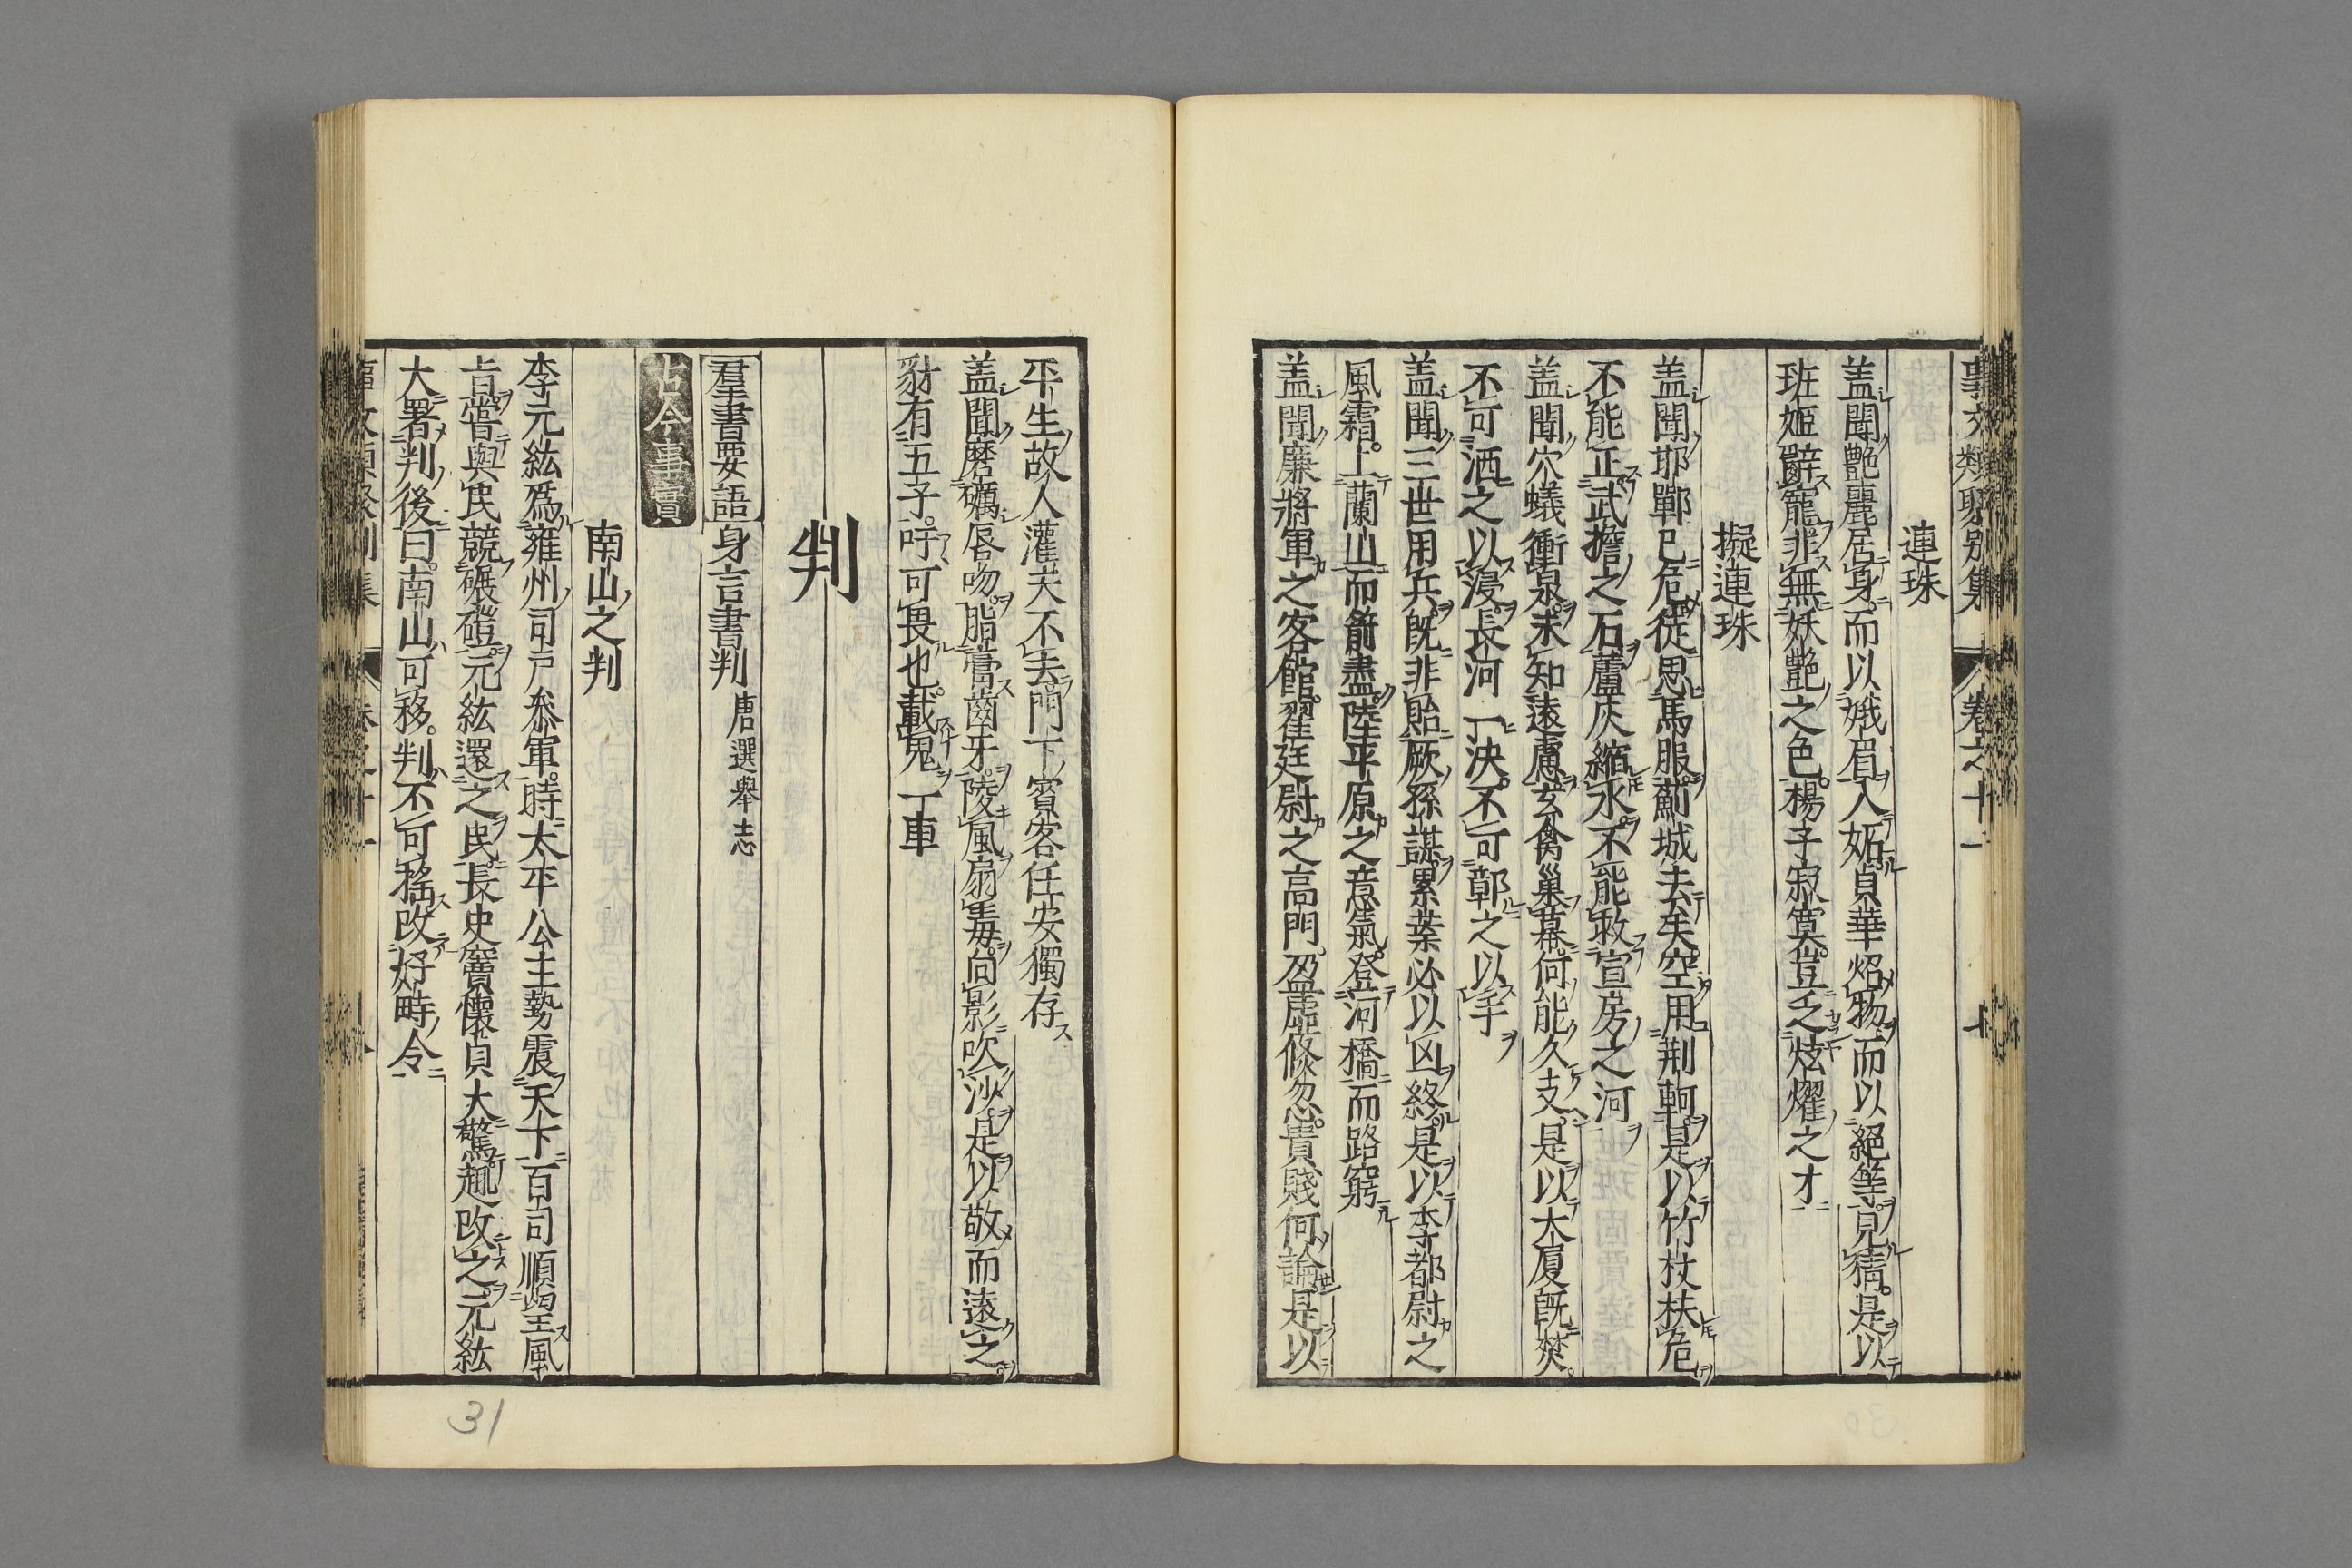 事文類聚別集 卷之十一
連珠
盖聞艷麗居身而以娥眉入妬貞華炤物而以絕等見猜是以
班姬辭寵非無妖艷之色楊子寂寞豈乏炫燿之才
擬連珠
盖聞邯鄲已危徒思馬服薊城去矣空用荆軻是以竹杖扶危
不能正武擔之石蘆灰縮水不能救宣房之河
盖聞穴蟻衝泉未知遠慮玄禽巢幕何能久支是以大廈既焚
不可洒之以浸長河一決不可鄣之以手
盖聞三世用兵既非貽厥孫謀累業必以凶終是以李都尉之
風霜上蘭山而箭盡陸平原之意氣登河橋而路窮
盖聞廉將軍之客館翟廷尉之高門盈虛倐忽貴賤何論是以
平生故人灌夫不去門下賓客任安獨存
盖聞磨礪唇吻脂膏齒牙陵風扇毒向影吹沙是以敬而遠之
豺有五子吁可畏也載鬼一車
判
羣書要語 身言書判 唐選舉志
古今事實
南山之判
李元紘爲雍州司戶叅軍時太平公主勢震天下百司順望風
旨嘗與民競碾磑元紘還之民長史竇懷貞大驚趣改之元紘
大署判後曰南山可移判不可搖改好畤令
31